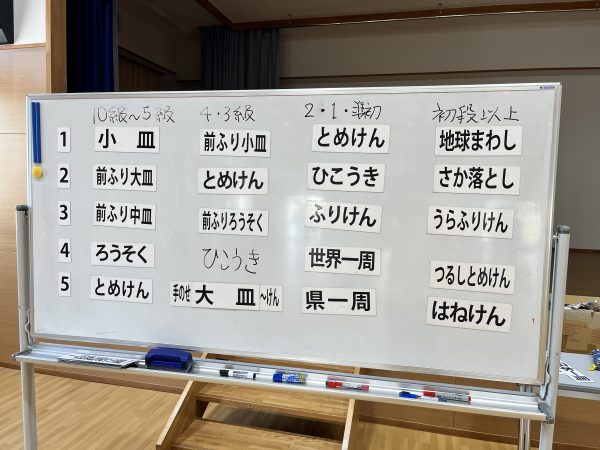 10級～5級 4・3級 2・1・準初 初段以上
1 小皿 前ふり小皿 とめけん 地球まわし
2 前ふり大皿 とめけん ひこうき さか落とし
3 前ふり中皿 前ふりろうそく ふりけん うらふりけん
4 ろうそく ひこうき 世界一周 つるしとめけん
5 とめけん 手のせ大皿～けん 県一周 はねけん